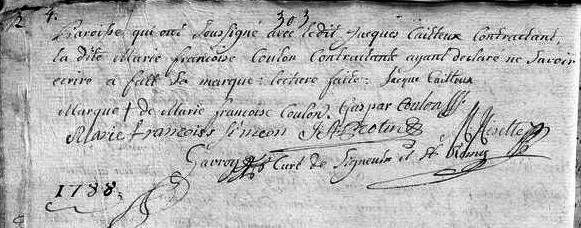 2 4. 303
Paroisse qui ont soussigné avec ledit Jacques Cailteux Contractant,
la dite Marie françoise Coulon Contractante ayant declaré ne Savoir
ecrire a fait Sa marque: lecture faite: Jacque Cailteux
Marque † de Marie francoise Coulon. Gaspar Coulon
Marie francoise
Gavroy Curé de et St Remy
1788.